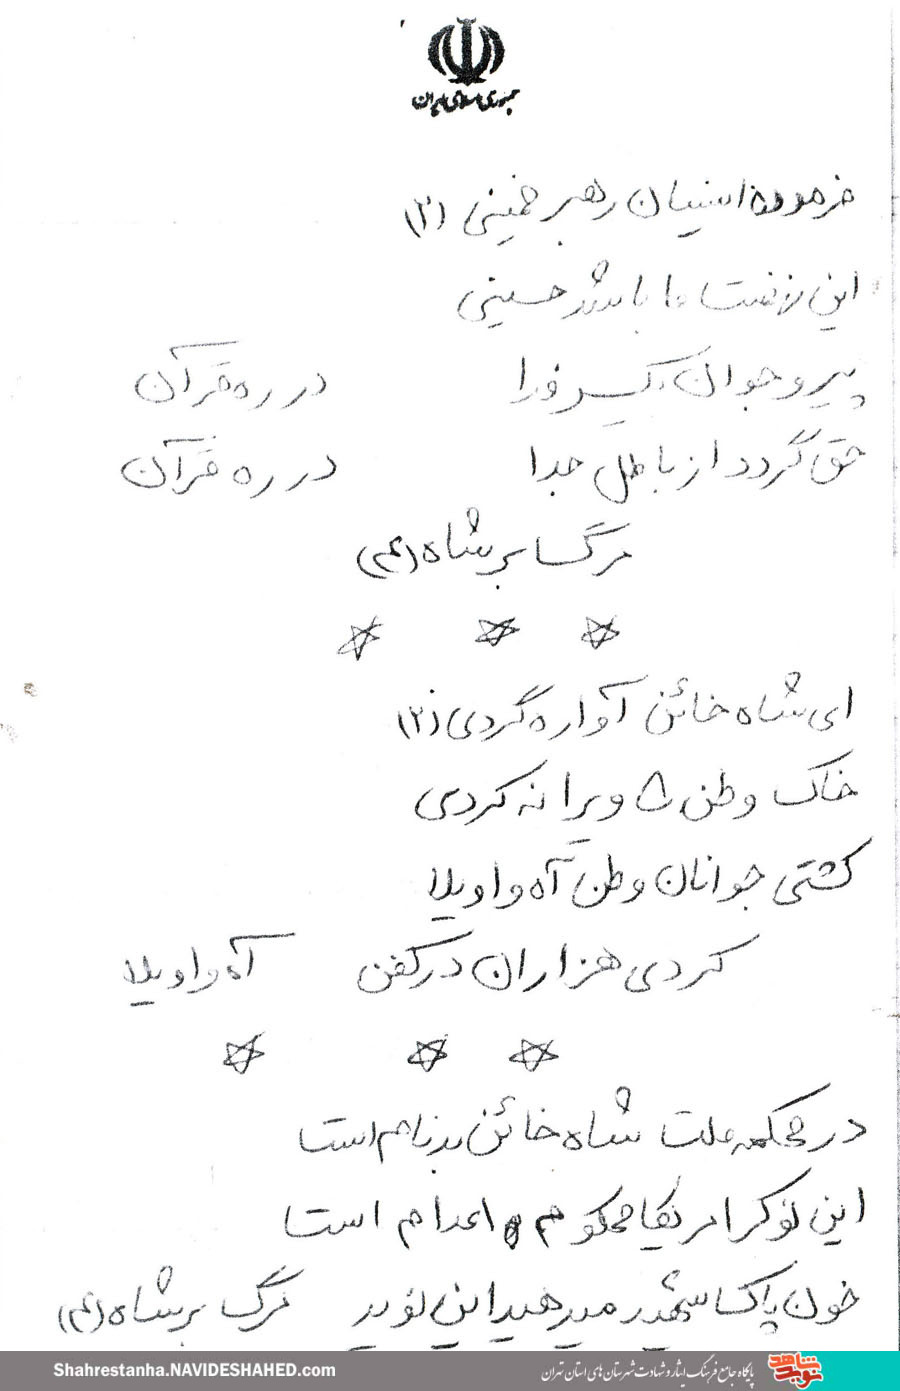 جمهوری اسلامی ایران
فرموده اینسان رهبر خمینی (۲)
این نهضت ما باشد حسینی
پیر و جوان یکسر فدا در ره قرآن
حق گردد از باطل جدا در ره قرآن
مرگ بر شاه (۴)
ای شاه خائن آواره گردی (۲)
خاک وطن ویرانه کردی
کشتی جوانان وطن آه و اویلا
کردی هزاران در کفن آه و اویلا
در محکمه ملت شاه خائن بدنام است
این نوکر امریکا محکوم اعدام است
خون پاک شهید میدهد این نوید مرگ بر شاه (۴)
Shahrestanha.NAVIDESHAHED.com
پایگاه جامع فرهنگ ایثار و شهادت شهرستان های استان تهران
نوید شاهد